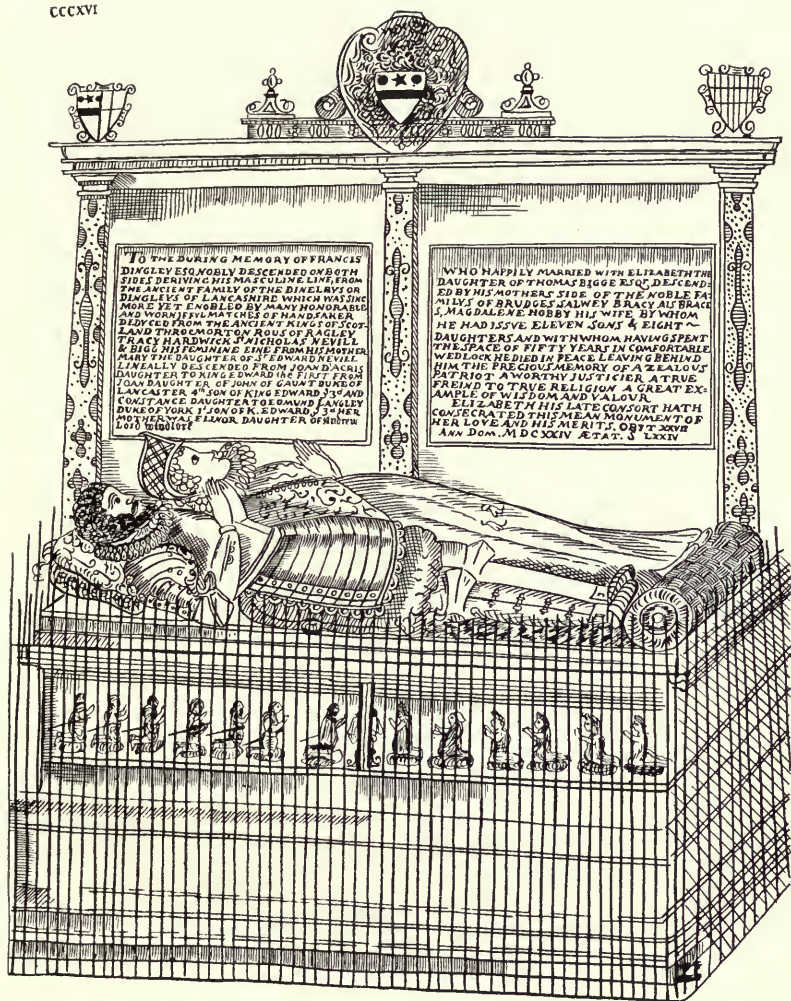 CCCXVI
TO THE DURING MEMORY OF FRANCIS
DINGLEY ESQ NOBLY DESCENDED ON BOTH
SIDES DERIVING HIS MASCULINE LINE, FROM
THE ANCIENT FAMILY OF THE DINELEUS OR
DINGLEUS OF LANCASHIRE WHICH WAS SINC
MORE YET ENOBLED BY MANY HONORABLE
AND WORNJFVL MATCHES OF HANDSAKER
DEDVCED FROM THE ANCIENT KINGS OF SCOT-
LAND THROCMORTON ROUS OF RAGLEY
TRACY HARDWICK St NICHOLAS NEVILL
& BIGG HIS FEMININE EINE FROM HIS MOTHER
MARY THE DAUGHTER OF Sr EDWARD NEVILL
LINEALLY DESCENDED FROM JOAN D'ACRIS
DAUGHTER TO KING EDWARD THE FIRST FROM
JOAN DAUGHTER OF JOHN OF GAUNT DUKE OF
LANCASTER 4th SON OF KING EDWARD ye 3rd AND
CONSTANCE DAUGHTER TO EDMUND LANGLEY
DUKE OF YORK 1st SON OF K. EDWARD ye 3rd HER
MOTHER WAS ELINOR DAUGHTER OF Andrew
Lord Windsore
WHO HAPPILY MARRIED WITH ELIZABETH THE
DAUGHTER OF THOMAS BIGGE ESQr, DESCEND:
ED BY HIS MOTHERS SIDE OF THE NOBLE FA-
MILYS OF BRUDGES SALWEY BRACY ALIS BRACE
S, MAGDALENE HOBBY HIS WIFE, BY WHOM
HE HAD ISSVE ELEVEN SONS & EIGHT ~
DAUGHTERS AND WITH WHOM HAVING SPENT
THE SPACE OF FIFTY YEARS IN COMFORTABLE
WEDLOCK HE DIED IN PEACE LEAVING BEHIND
HIM THE PRECIOUS MEMORY OF A ZEALOUS
PATRIOT A WORTHY JUSTICIER A TRUE
FREIND TO TRUE RELIGION A GREAT EX-
AMPLE OF WISDOM AND VALOUR
ELIZABETH HIS LATE CONSORT HATH
CONSECRATED THIS MEAN MONUMENT OF
HER LOVE AND HIS MERITS. OBIIT XXVII
ANN DOM. MDCXXIV ÆTAT. S LXXIV